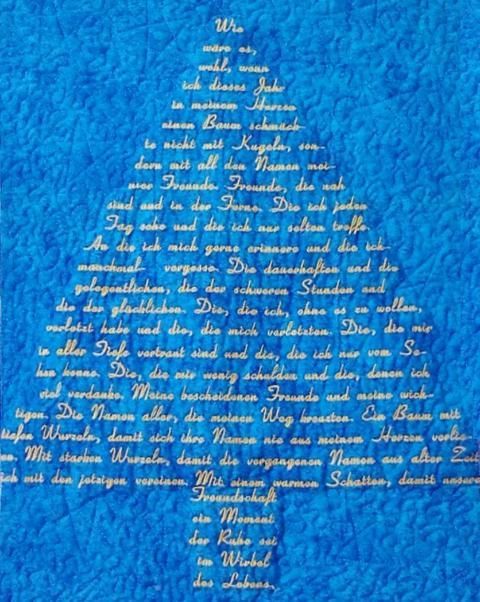 Wie
wäre es,
wohl, wenn
ich dieses Jahr
in meinem Herzen
einen Baum schmück-
te nicht mit Kugeln, son-
dern mit all den Namen mei-
ner Freunde. Freunde, die nah
sind und in der Ferne. Die ich jeden
Tag sehe und die ich nur selten treffe.
An die ich mich gerne erinnere und die ich
manchmal vergesse. Die dauerhaften und die
gelegentlichen, die der schweren Stunden und
die der glücklichen. Die, die ich, ohne es zu wollen,
verletzt habe und die, die mich verletzten. Die, die mir
in aller Tiefe vertraut sind und die, die ich nur vom Se-
hen kenne. Die, die mir wenig schulden und die, denen ich
viel verdanke. Meine bescheidenen Freunde und meine wich-
tigen. Die Namen aller, die meinen Weg kreuzten. Ein Baum mit
tiefen Wurzeln, damit sich ihre Namen nie aus meinem Herzen verlie-
en. Mit starken Wurzeln, damit die vergangenen Namen aus alter Zeit
ich mit den jetzigen vereinen. Mit einem warmen Schatten, damit unsere
Freundschaft
ein Moment
der Ruhe sei
im Wirbel
des Lebens.